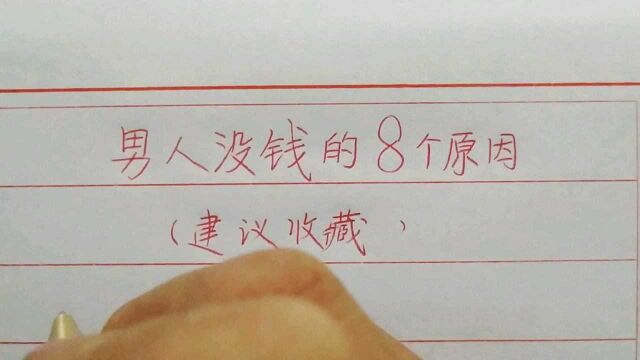 男人没钱的8个原因
（建议收藏）